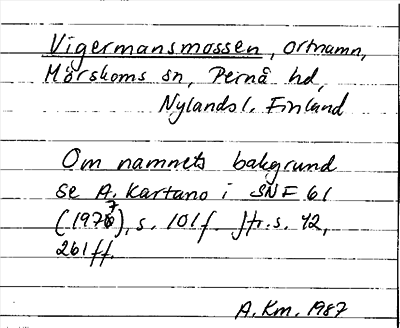 Vigermansmossen, ortnamn,
Mörskoms sn, Pernå hd,
Nylands l. Finland
Om namnets bakgrund
se A. Kartano i SNF 61
(1977), s. 101f. Jfr. s. 42,
261ff.
A.Km. 1987